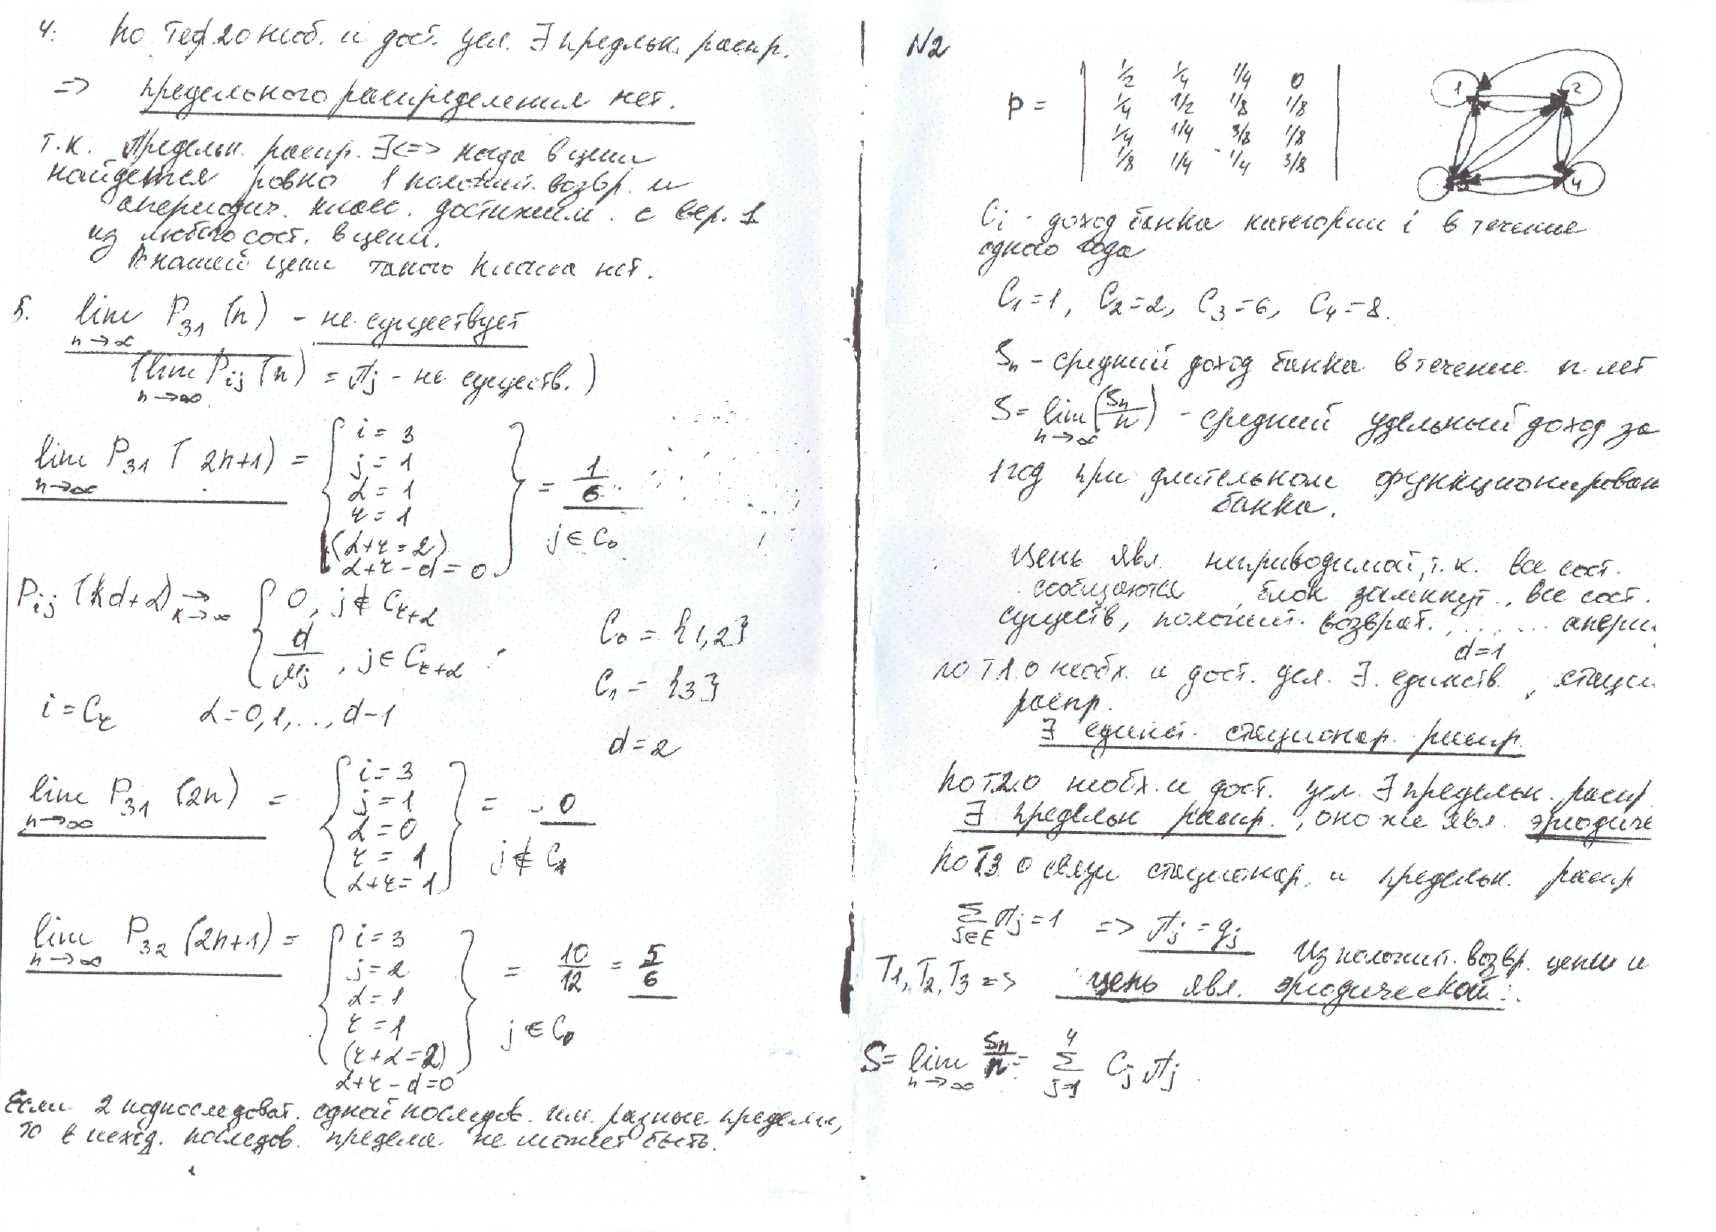 4: по Теор.2 о необ. и дост. усл. ∃ предельн. распр.
=> предельного распределения нет.
т.к. Предельн. распр. ∃<=> когда в цепи
найдется ровно 1 положит. возвр. и
апериодич. класс. достижим. с вер. 1
из любого сост. в цепи.
В нашей цепи такого класса нет.
5. lim P31 (n) - не существует
n→∞
(lim Pij (n) = πj - не существ.)
n→∞
lim P31 (2n+1) = { i=3 j=1 α=1 r=1 (α+r=2) α+r-d=0 } = 1/6
n→∞
j ∈ C0
Pij (kd+α) → { 0, j ∉ Cr+α
k→∞
d/μj , j ∈ Cr+α
C0 = {1,2}
C1 = {3}
i = Cr α=0,1,..., d-1
d=2
lim P31 (2n) = { i=3 j=1 α=0 r=1 α+r=1 } = 0
n→∞
j ∉ C1
lim P32 (2n+1) = { i=3 j=2 α=1 r=1 (r+α=2) α+r-d=0 } = 10/12 = 5/6
n→∞
j ∈ C0
Если 2 подпоследоват. одной последов. им. разные пределы,
то в исход. последов. предела не может быть.
N2
p = | 1/2 1/4 1/4 0 |
| 1/4 1/2 1/8 1/8 |
| 1/4 1/4 3/8 1/8 |
| 1/8 1/4 1/4 3/8 |
1 2
3 4
Ci - доход банка категории i в течение
одного года
C1=1, C2=2, C3=6, C4=8.
Sn - средний доход банка в течение n лет
S = lim (Sn/n) - средний удельный доход за
n→∞
1 год при длительном функционирован
банка.
Цепь явл. неприводимой, т.к. все сост.
сообщаются, блок замкнут., все сост.
существ, положит. возврат., апери
d=1
по T1 о необх. и дост. усл. ∃. единств, стаци
распр.
∃ единст. стационар. распр.
по T2 о необх. и дост. усл. ∃ предельн. распр
∃ предельн распр., оно же явл. эргодиче
по T3 о связи стационар. и предельн. распр
Σ πj = 1 => πj = qj
j∈E
Из положит. возвр. цепи и
T1, T2, T3 => цепь явл. эргодической.
S = lim Sn/n = Σ Cj πj
n→∞ j=1 4